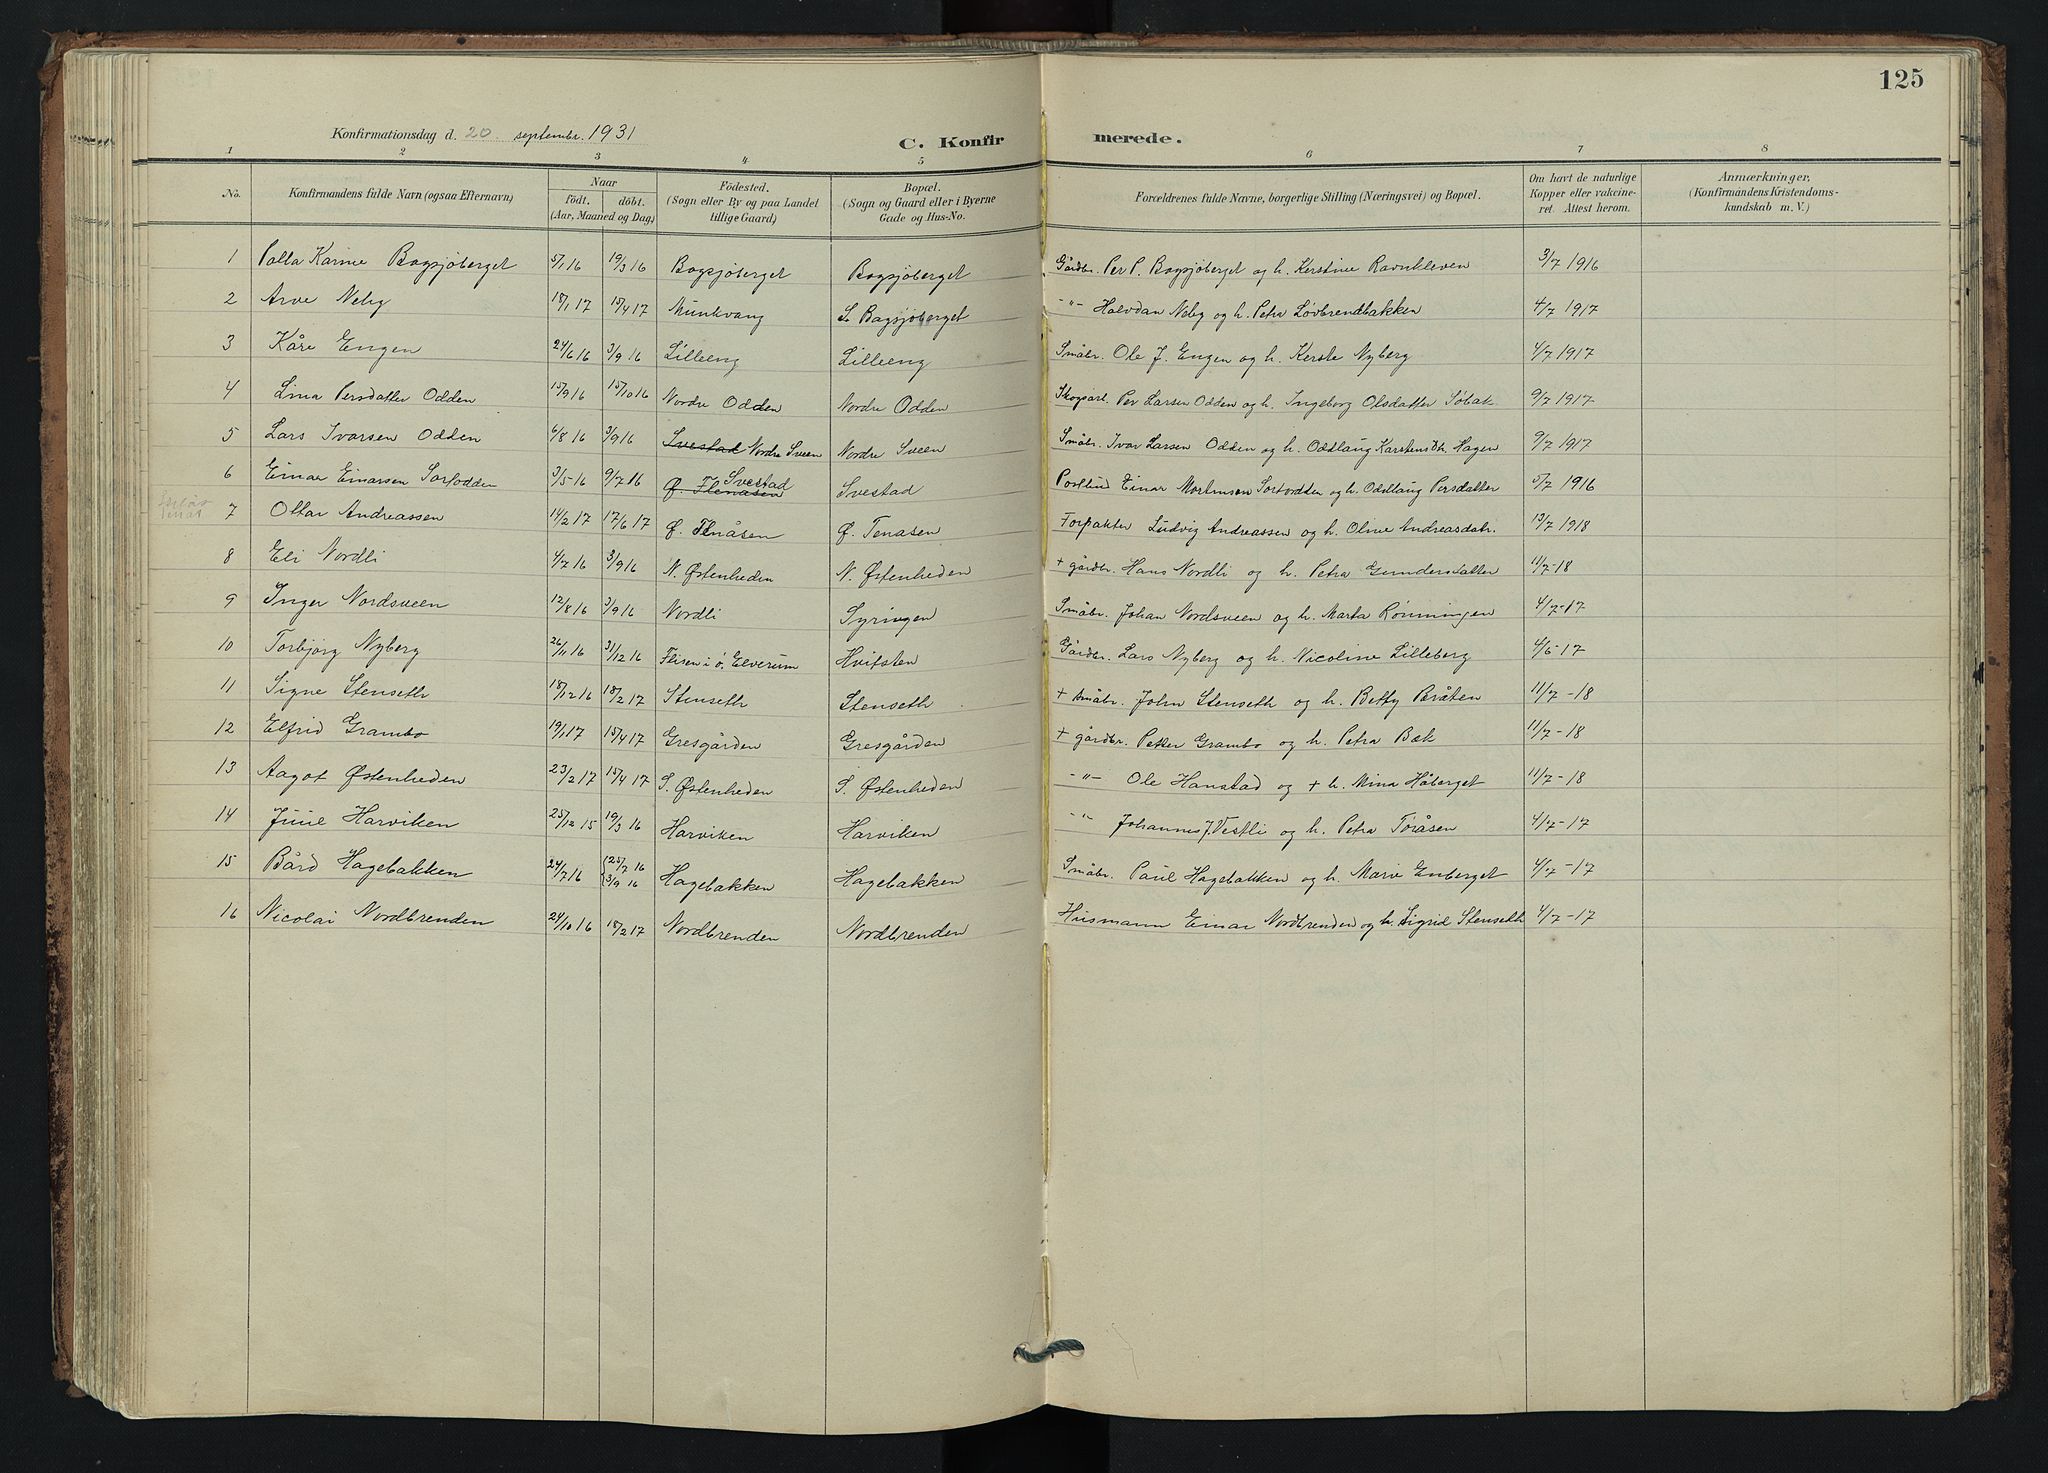 125
Konfirmationsdag d. 20 septembr. 1931
C. Konfir merede.
1 2 3 4 5 6 7 8
No. Konfirmandens fulde Navn (ogsaa Efternavn) Naar födt. döbt. (Aar, Maaned og Dag) Födested. (Sogn eller By og paa Landet tillige Gaard) Bopæl. (Sogn og Gaard eller i Byerne Gade og Hus-No. Forældrenes fulde Navne, borgerlige Stilling (Næringsvei) og Bopæl. Om havt de naturlige Kopper eller vakcineret. Attest herom. Anmærkninger, (Konfirmandens Kristendomskundskab m. V.)
1 Palla Karine Bogsjøberget 5/1 16 19/3 16 Bogsjøberget Bogsjøberget Gårdbr. Per P. Bogsjøberget og h. Kerstine Ravnkleven 3/7 1916
2 Arve Neby 18/1 17 15/4 17 Munkvang S. Bogsjøberget -"- Halvdan Neby og h. Petra Løvbrendbakken 4/7 1917
3 Kåre Engen 24/6 16 3/9 16 Lilleeng Lilleeng Småbr. Ole J. Engen og h. Kerste Nyberg 4/7 1917
4 Lina Persdatter Odden 15/9 16 15/10 16 Nordre Odden Nordre Odden Skogsarb. Per Larsen Odden og h. Ingeborg Olsdatter Søbak 9/7 1917
5 Lars Ivarsen Odden 6/8 16 3/9 16 Svestad Nordre Sveen Nordre Sveen Småbr. Ivar Larsen Odden og h. Oddlaug Karstensdtr. Hagen 9/7 1917
6 Einar Einarsen Sorfodden 3/5 16 9/7 16 Ø. Tenåsen Svestad Svestad Postbud Einar Mortensen og h. Oddlaug Persdatter 5/7 1916
7 Ottar Andreassen 14/2 17 17/6 17 Ø. Tenåsen Ø. Tenåsen Forpakter Ludvig Andreassen og h. Oline Andreasdatr. 13/7 1918
8 Eli Nordli 4/7 16 3/9 16 N. Østenheden N. Østenheden + gårdbr. Hans Nordli og h. Petra Gundersdatter 11/7-18
9 Inger Nordsveen 12/8 16 3/9 16 Nordli Syringen Småbr. Johan Nordsveen og h. Marta Rønningen 4/7-17
10 Torbjørg Nyberg 26/11 16 31/12 16 Flisen i ø. Elverum Hvitsten Gårdbr. Lars Nyberg og h. Nicoline Lilleberg 4/6-17
11 Signe Stenseth 18/12 16 18/2 17 Stenseth Stenseth + småbr. John Stenseth og h. Betty Bråten 11/7-18
12 Elfrid Grambo 19/1 17 15/4 17 Gresgården Gresgården + gårdbr. Petter Grambo og h. Petra Bæk 11/7-18
13 Aagot Østenheden 23/2 17 15/4 17 S. Østenheden S. Østenheden -"- Ole Hanstad og + h. Mina Håberget 11/7-18
14 Juul Harviken 25/12 15 19/3 16 Harviken Harviken -"- Johannes J. Vestli og h. Petra Toråsen 4/7-17
15 Bård Hagebakken 24/7 16 {25/7 16 {3/9 16 Hagebakken Hagebakken Småbr. Paul Hagebakken og h. Marie Enberget 4/7-17
16 Nicolai Nordbrenden 24/10 16 18/2 17 Nordbrenden Nordbrenden Husmann Einar Nordbrenden og h. Sigrid Stenseth 4/7-17